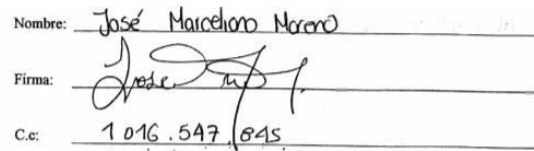 Nombre: José Marceliano Moreno
Firma: Jose
C.c: 1 016.547.845